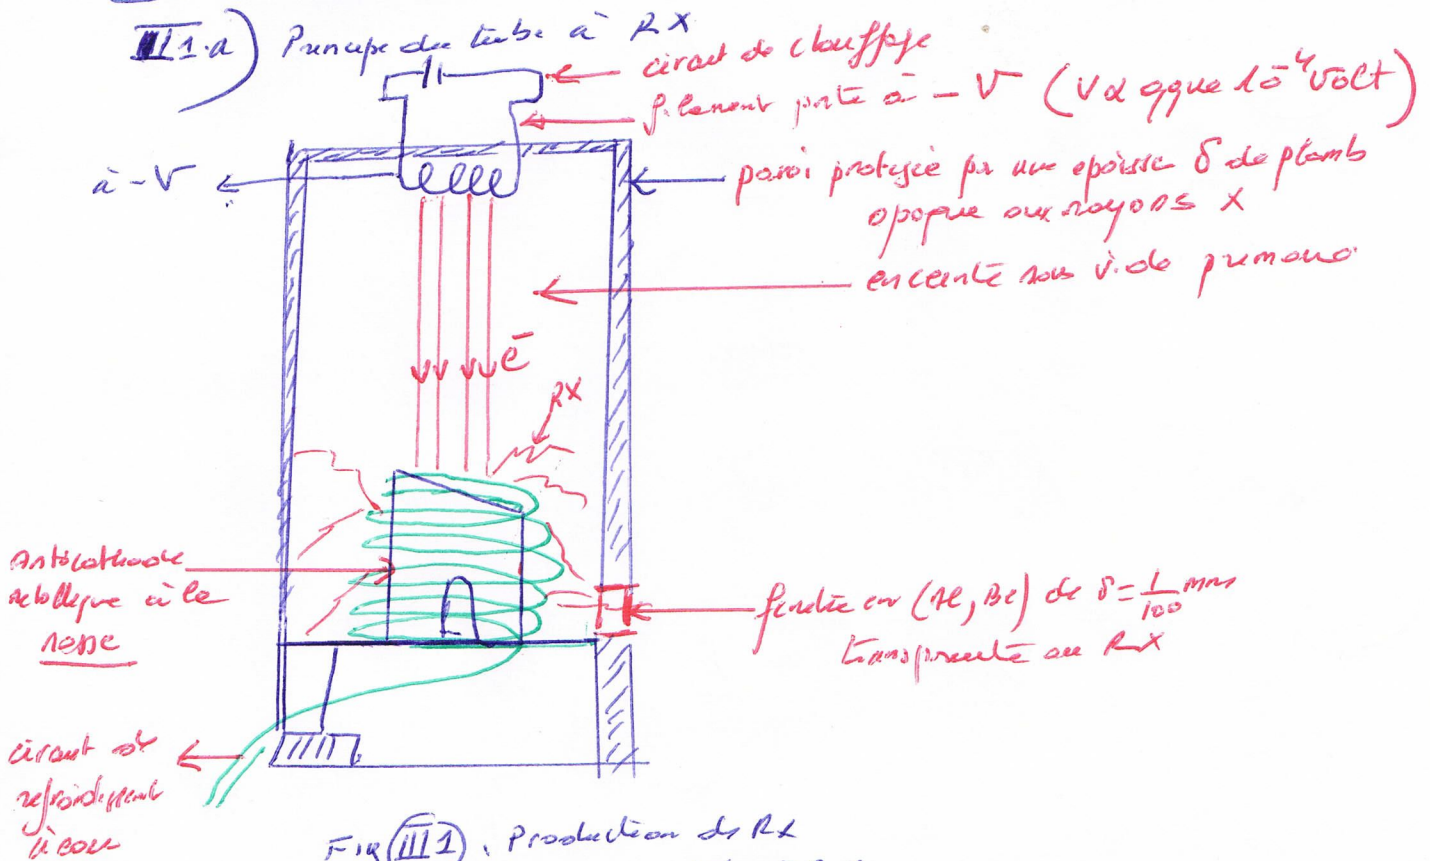 III 1.a) Principe du tube à RX
circuit de chauffage
filament porté à - V (V α qque 10⁴ Volt)
à - V
paroi protégée par une épaisse δ de plomb
opaque aux rayons X
enceinte sous vide
e⁻
RX
Anticathode
métallique à la
masse
fenêtre en (Al, Be) de δ = 1/100 mm
transparente au RX
circuit de
refroidissement
à eau
Fig (III 1). Production de RX